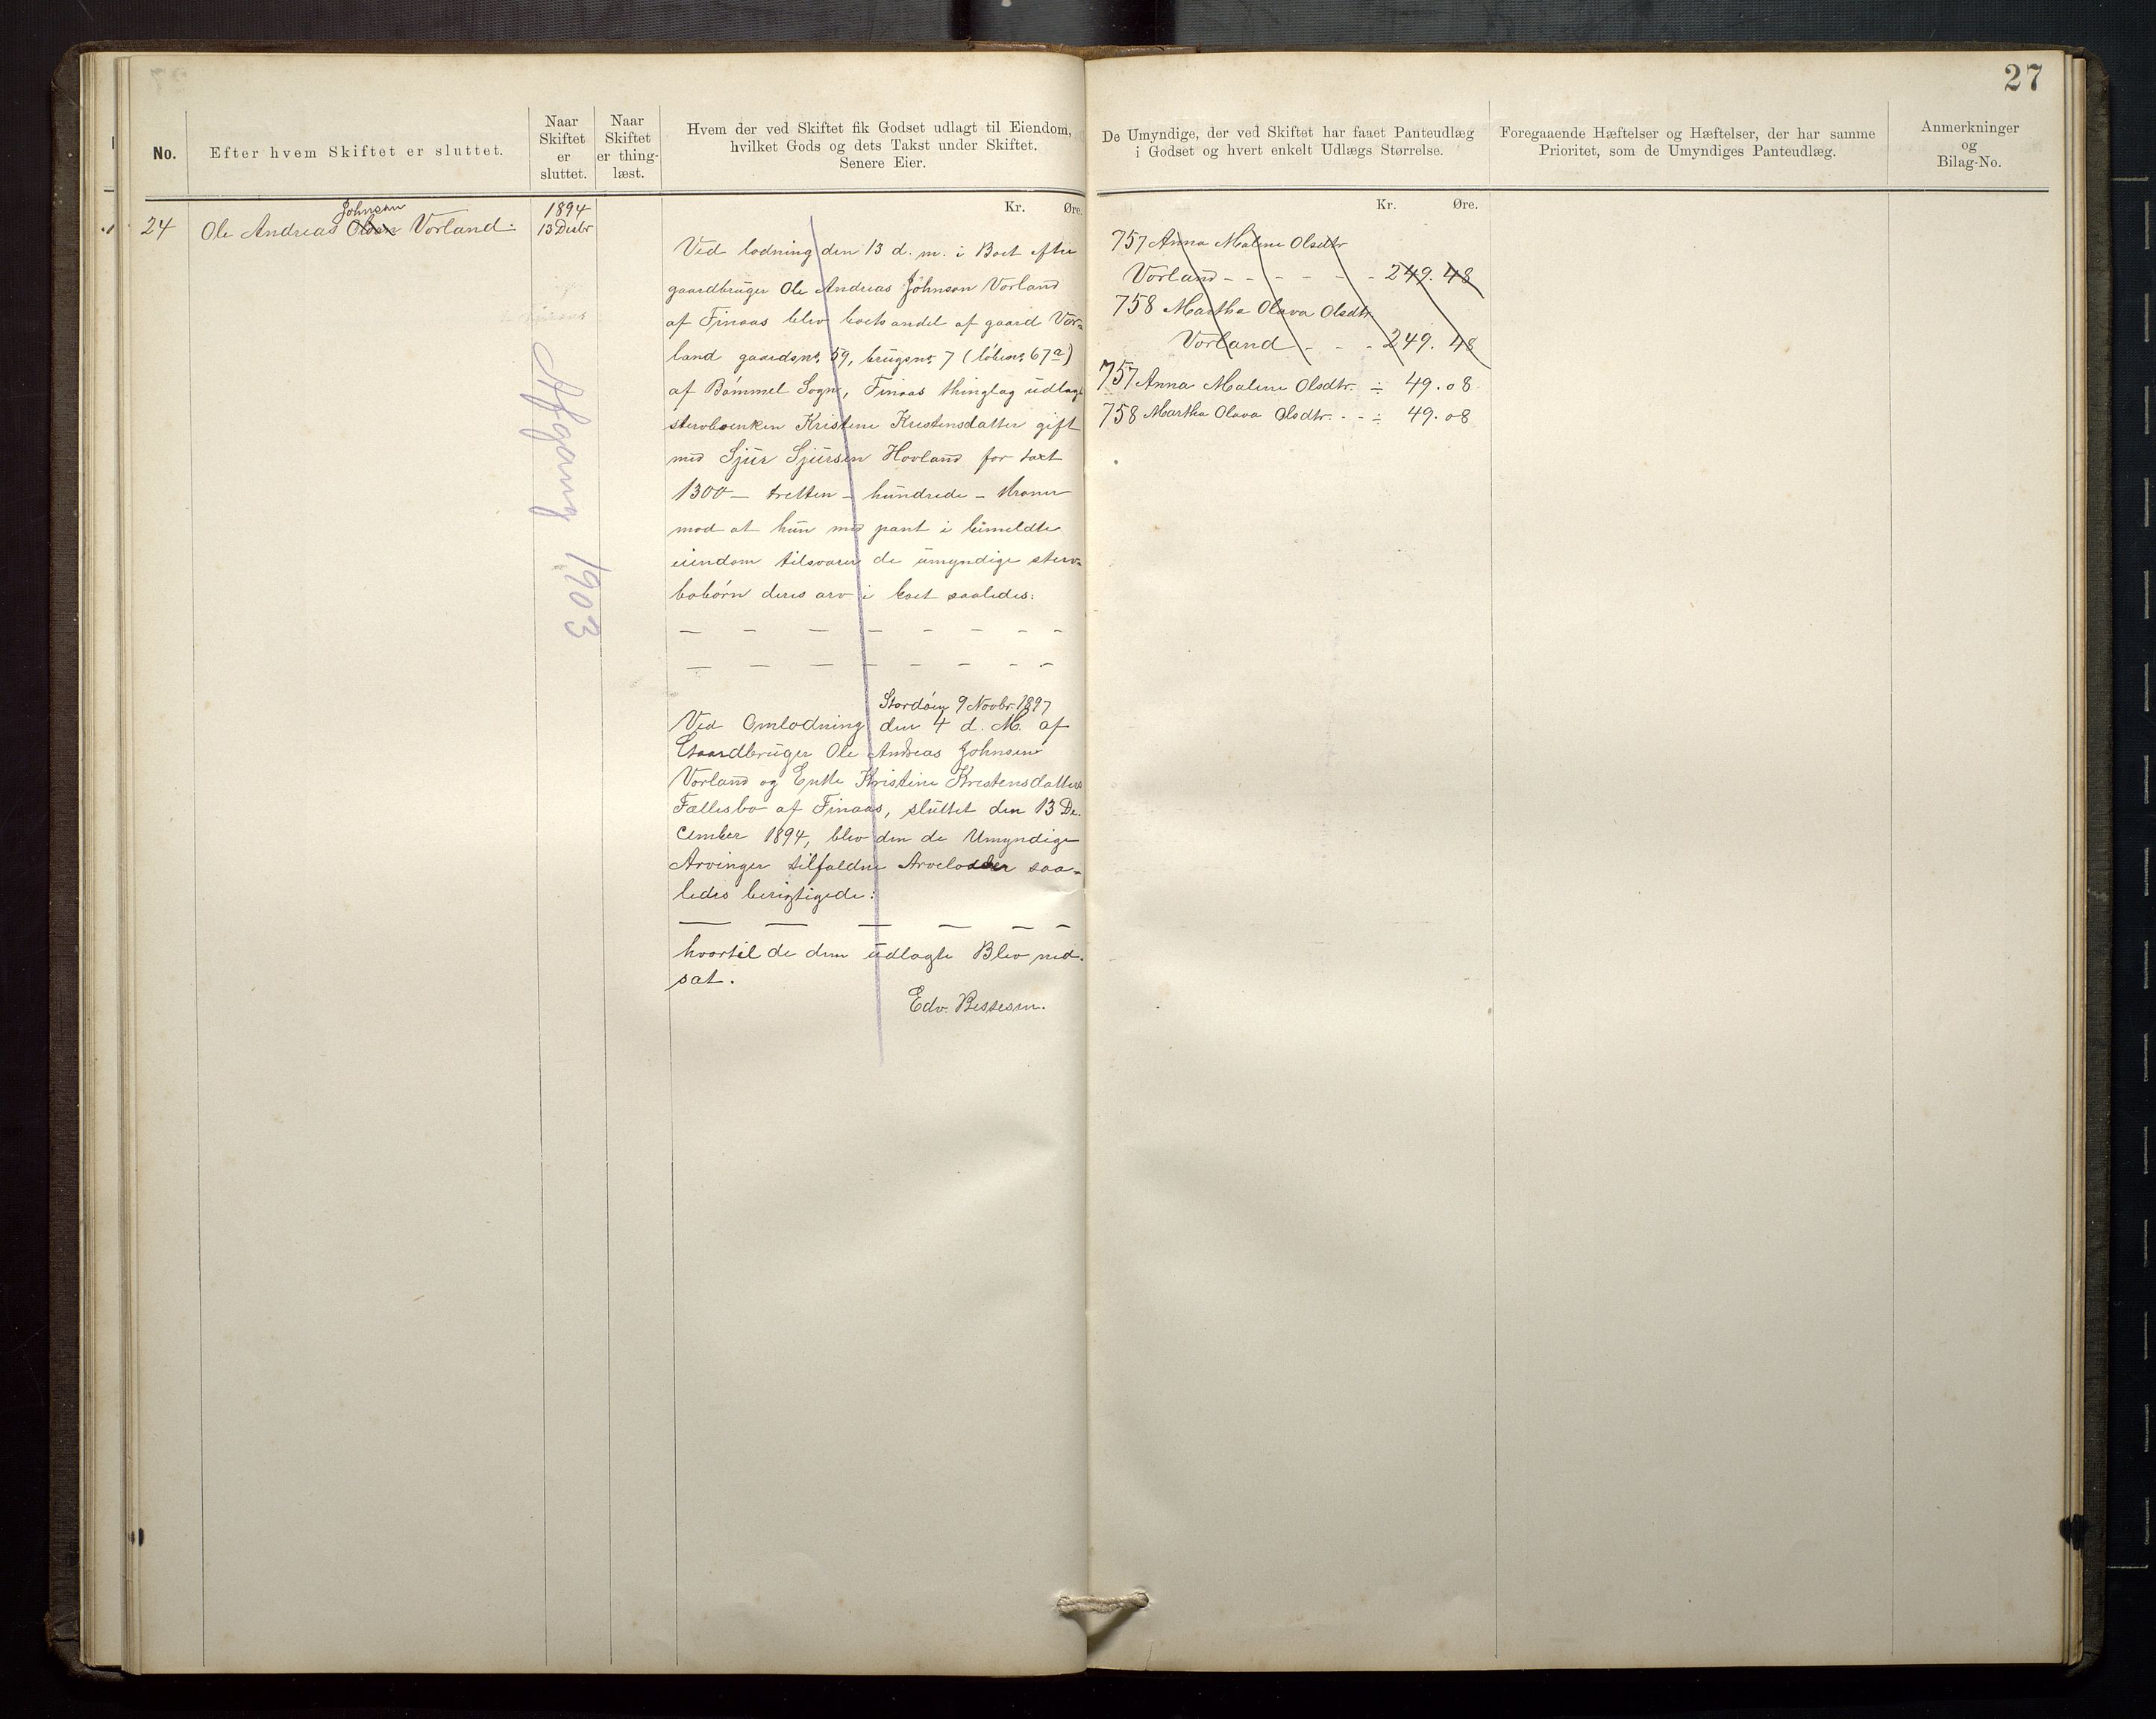 27
No.
Efter hvem Skiftet er sluttet.
Naar
Skiftet
er
sluttet.
Naar
Skiftet
er thing-
læst.
Hvem der ved Skiftet fik Godset udlagt til Eiendom,
hvilket Gods og dets Takst under Skiftet.
Senere Eier.
De Umyndige, der ved Skiftet har faaet Panteudlæg
i Godset og hvert enkelt Udlægs Størrelse.
Foregaaende Hæftelser og Hæftelser, der har samme
Prioritet, som de Umyndiges Panteudlæg.
Anmerkninger
og
Bilag-No.
Kr. Øre.
24 Ole Andreas Johnson Vorland.
1894
13 Desbr
Afgang 1903
Ved lodning den 13 d. m. i Boet efter
gaardbruger Ole Andreas Johnson Vorland
af Finaas blev boets andel af gaard Vor=
land gaardsn. 59, brugsn. 7 (löben. 67a)
af Bömmel Sogn, Finaas thinglag udlagt
stervboenken Kristine Kristensdatter gift
med Sjur Sjursen Hovland for taxt
1300 — tretten — hundrede — Kroner
mod at hun med pant i bemeldte
eiendom tilsvarer de umyndige sterv=
bobörn deres arv i boet saaledes:
— — — — — — — —
— — — — — — — —
Stordöen 9 Novbr. 1897
Ved Omlodning den 4 d. M. af
Gaardbruger Ole Andreas Johnsen
Vorland og Enke Kristine Kristensdatters
Fællesbo af Finaas, sluttet den 13 De-
cember 1894, blev den de Umyndige
Arvinger tilfaldne Arvelodder saa-
ledes berigtigede:
— — — — — —
hvortil de dem udlagte Blev ned-
sat.
Edv. Bestesen.
Kr. Øre.
757 Anna Malene Olsdtr
Vorland - - - - - - 249. 48
758 Martha Olava Olsdtr
Vorland - - - 249. 48
757 Anna Malene Olsdtr. ÷ 49. 08
758 Martha Olava Olsdtr. - - ÷ 49. 08